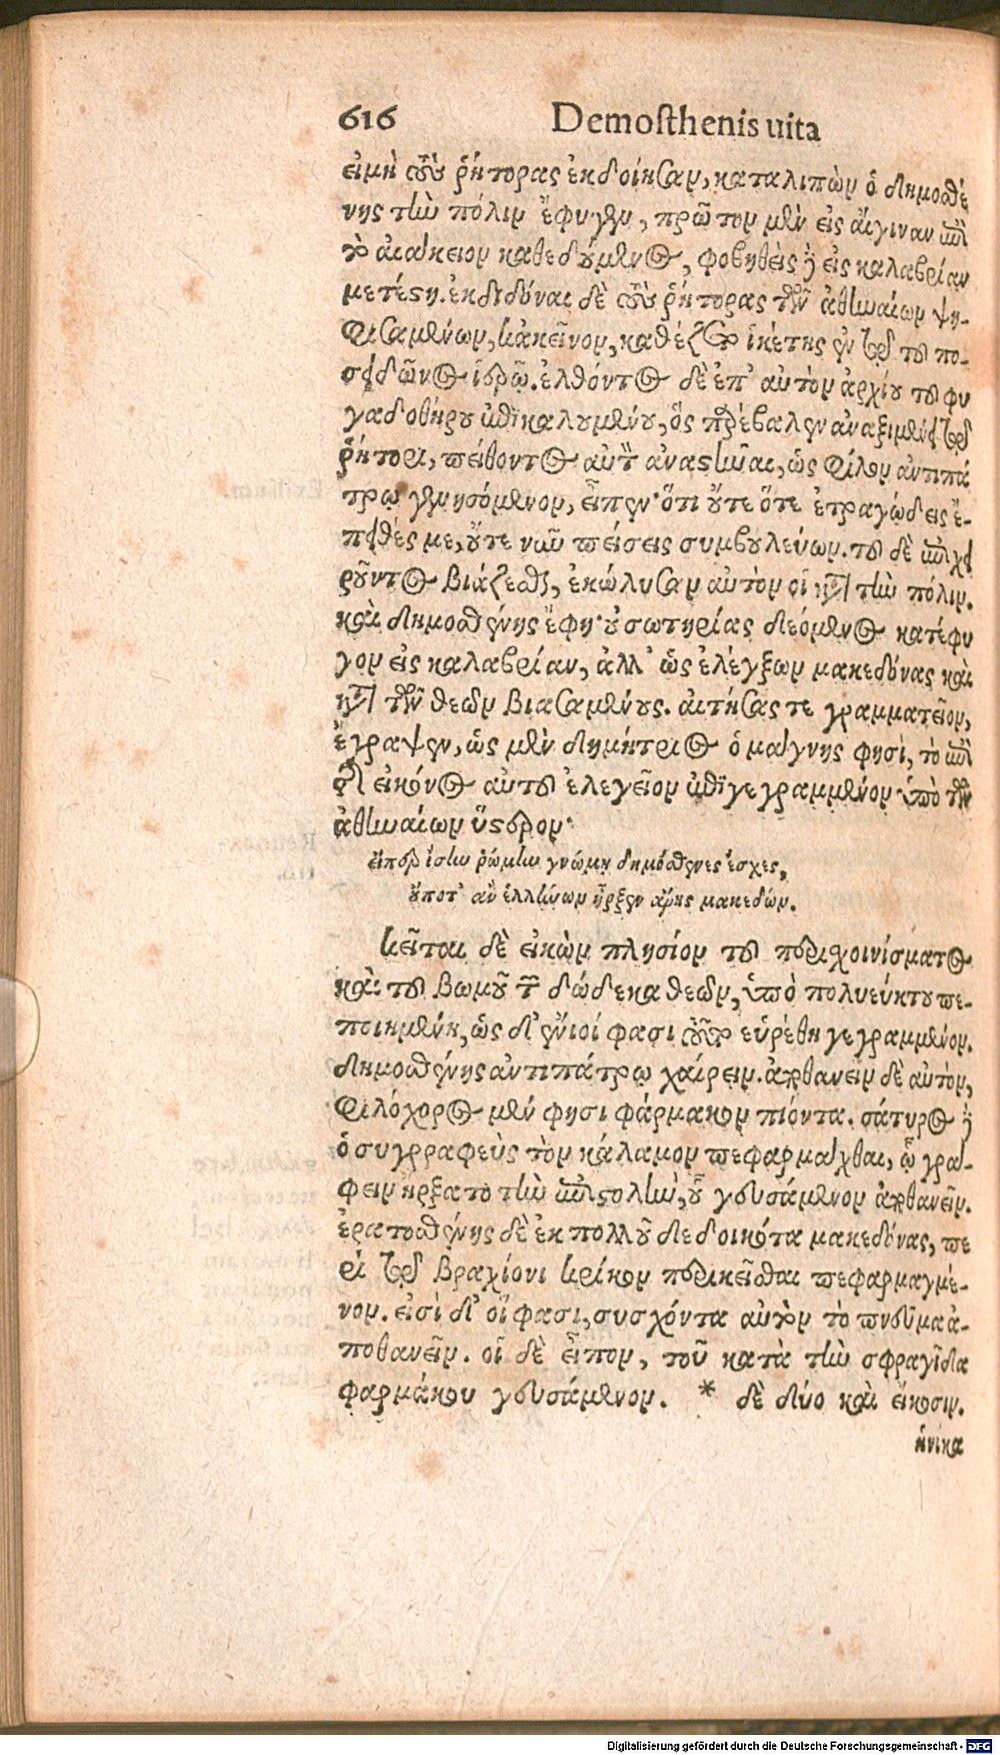 616 Demosthenis uita
εἰ μὴ τοὺς ῥήτορας ἐκδοίησαν, καταλιπὼν ὁ δημοσθέ
νης τὴν πόλιν ἔφυγεν, πρῶτον μὲν εἰς αἴγιναν ἐπὶ
τὸ αἰάκειον καθεδούμενος, φοβηθεὶς δὲ εἰς καλαβρίαν
μετέστη. ἐκδιδόναι δὲ τοὺς ῥήτορας τῶν ἀθηναίων ψη-
φισαμένων, κἀκεῖνον, καθέζετο ἱκέτης ἐν τῷ τοῦ πο-
σειδῶνος ἱερῷ. ἐλθόντος δὲ ἐπ' αὐτὸν ἀρχίου τοῦ φυ
γαδοθήρου ἐπικαλουμένου, ὃς παρέβαλεν ἀναξιμένει τῷ
ῥήτορι, πείθοντος αὐτὸν ἀναστῆναι, ὡς φίλον ἀντιπά
τρῳ γενησόμενον, εἶπεν· ὅτι οὔτε ὅτε ἐτραγῴδεις ἔ-
πειθές με, οὔτε νῦν πείσεις συμβουλεύων. τοῦ δὲ ἐπιχει
ροῦντος βιάζεσθαι, ἐκώλυσαν αὐτὸν οἱ κατὰ τὴν πόλιν.
καὶ δημοσθένης ἔφη· οὐ σωτηρίας δεόμενος κατέφυ
γον εἰς καλαβρίαν, ἀλλ' ὡς ἐλέγξων μακεδόνας καὶ
κατὰ τῶν θεῶν βιασαμένους. αἰτήσας τε γραμματεῖον,
ἔγραψεν, ὡς μὲν δημήτριος ὁ μάγνης φησὶ, τὸ ἐπὶ
τῆς εἰκόνος αὐτοῦ ἐλεγεῖον ἐπιγεγραμμένον ὑπὸ τῶν
ἀθηναίων ὕστερον·
εἴπερ ἴσην ῥώμην γνώμῃ δημόσθενες ἔσχες,
οὔποτ' ἂν ἑλλήνων ἦρξεν ἄρης μακεδών.
κεῖται δὲ εἰκὼν πλησίον τοῦ περισχοινίσματος
καὶ τοῦ βωμοῦ τῶν δώδεκα θεῶν, ὑπὸ πολυεύκτου πε-
ποιημένη, ὡς δ' ἔνιοί φασι τοῦτο εὑρέθη γεγραμμένον.
δημοσθένης ἀντιπάτρῳ χαίρειν. ἀποθανεῖν δὲ αὐτὸν,
φιλόχορος μέν φησι φάρμακον πιόντα. σάτυρος δὲ
ὁ συγγραφεὺς τὸν κάλαμον πεφαρμάχθαι, ᾧ γρά-
φειν ἤρξατο τὴν ἐπιστολὴν, οὗ γευσάμενον ἀποθανεῖν.
ἐρατοσθένης δὲ ἐκ πολλοῦ δεδοικότα μακεδόνας, πε
ρὶ τῷ βραχίονι κρίκον περικεῖσθαι πεφαρμαγμέ-
νον. εἰσὶ δ' οἵ φασι, συσχόντα αὐτὸν τὸ πνεῦμα ἀ-
ποθανεῖν. οἱ δὲ εἶπον, τοῦ κατὰ τὴν σφραγῖδα
φαρμάκου γευσάμενον. * δὲ δύο καὶ εἴκοσιν.
ἡνίκα
Digitalisierung gefördert durch die Deutsche Forschungsgemeinschaft - DFG